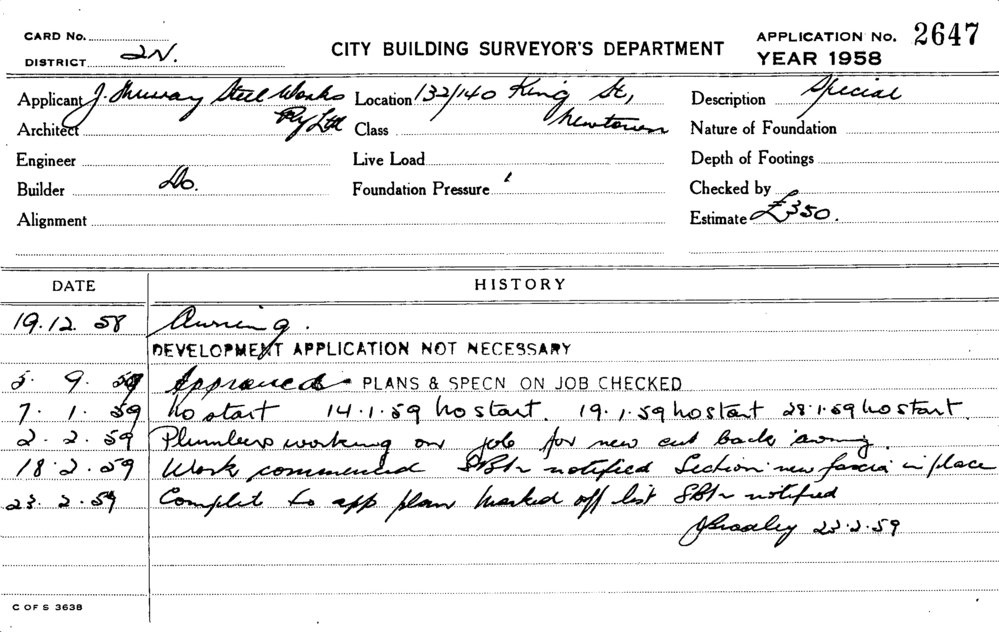 CARD No.
DISTRICT 2N.
CITY BUILDING SURVEYOR'S DEPARTMENT
APPLICATION No. 2647
YEAR 1958
Applicant J. Murray Steel Works Pty Ltd
Location 132/140 King St, Newtown
Description Special
Architect
Class
Nature of Foundation
Engineer
Live Load
Depth of Footings
Builder Do.
Foundation Pressure
Checked by
Alignment
Estimate £350.
DATE HISTORY
19.12.58 Awning.
DEVELOPMENT APPLICATION NOT NECESSARY
5. 9. 59 Approved PLANS & SPECN ON JOB CHECKED
7. 1. 59 no start 14.1.59 no start. 19.1.59 no start 28.1.59 no start.
2. 2. 59 Plumbers working on job for new cut back awning.
18.2.59 Work commenced notified Section new fascia in place
23. 2. 59 Complet to app plan marked off list notified
23.2.59
C OF S 3638